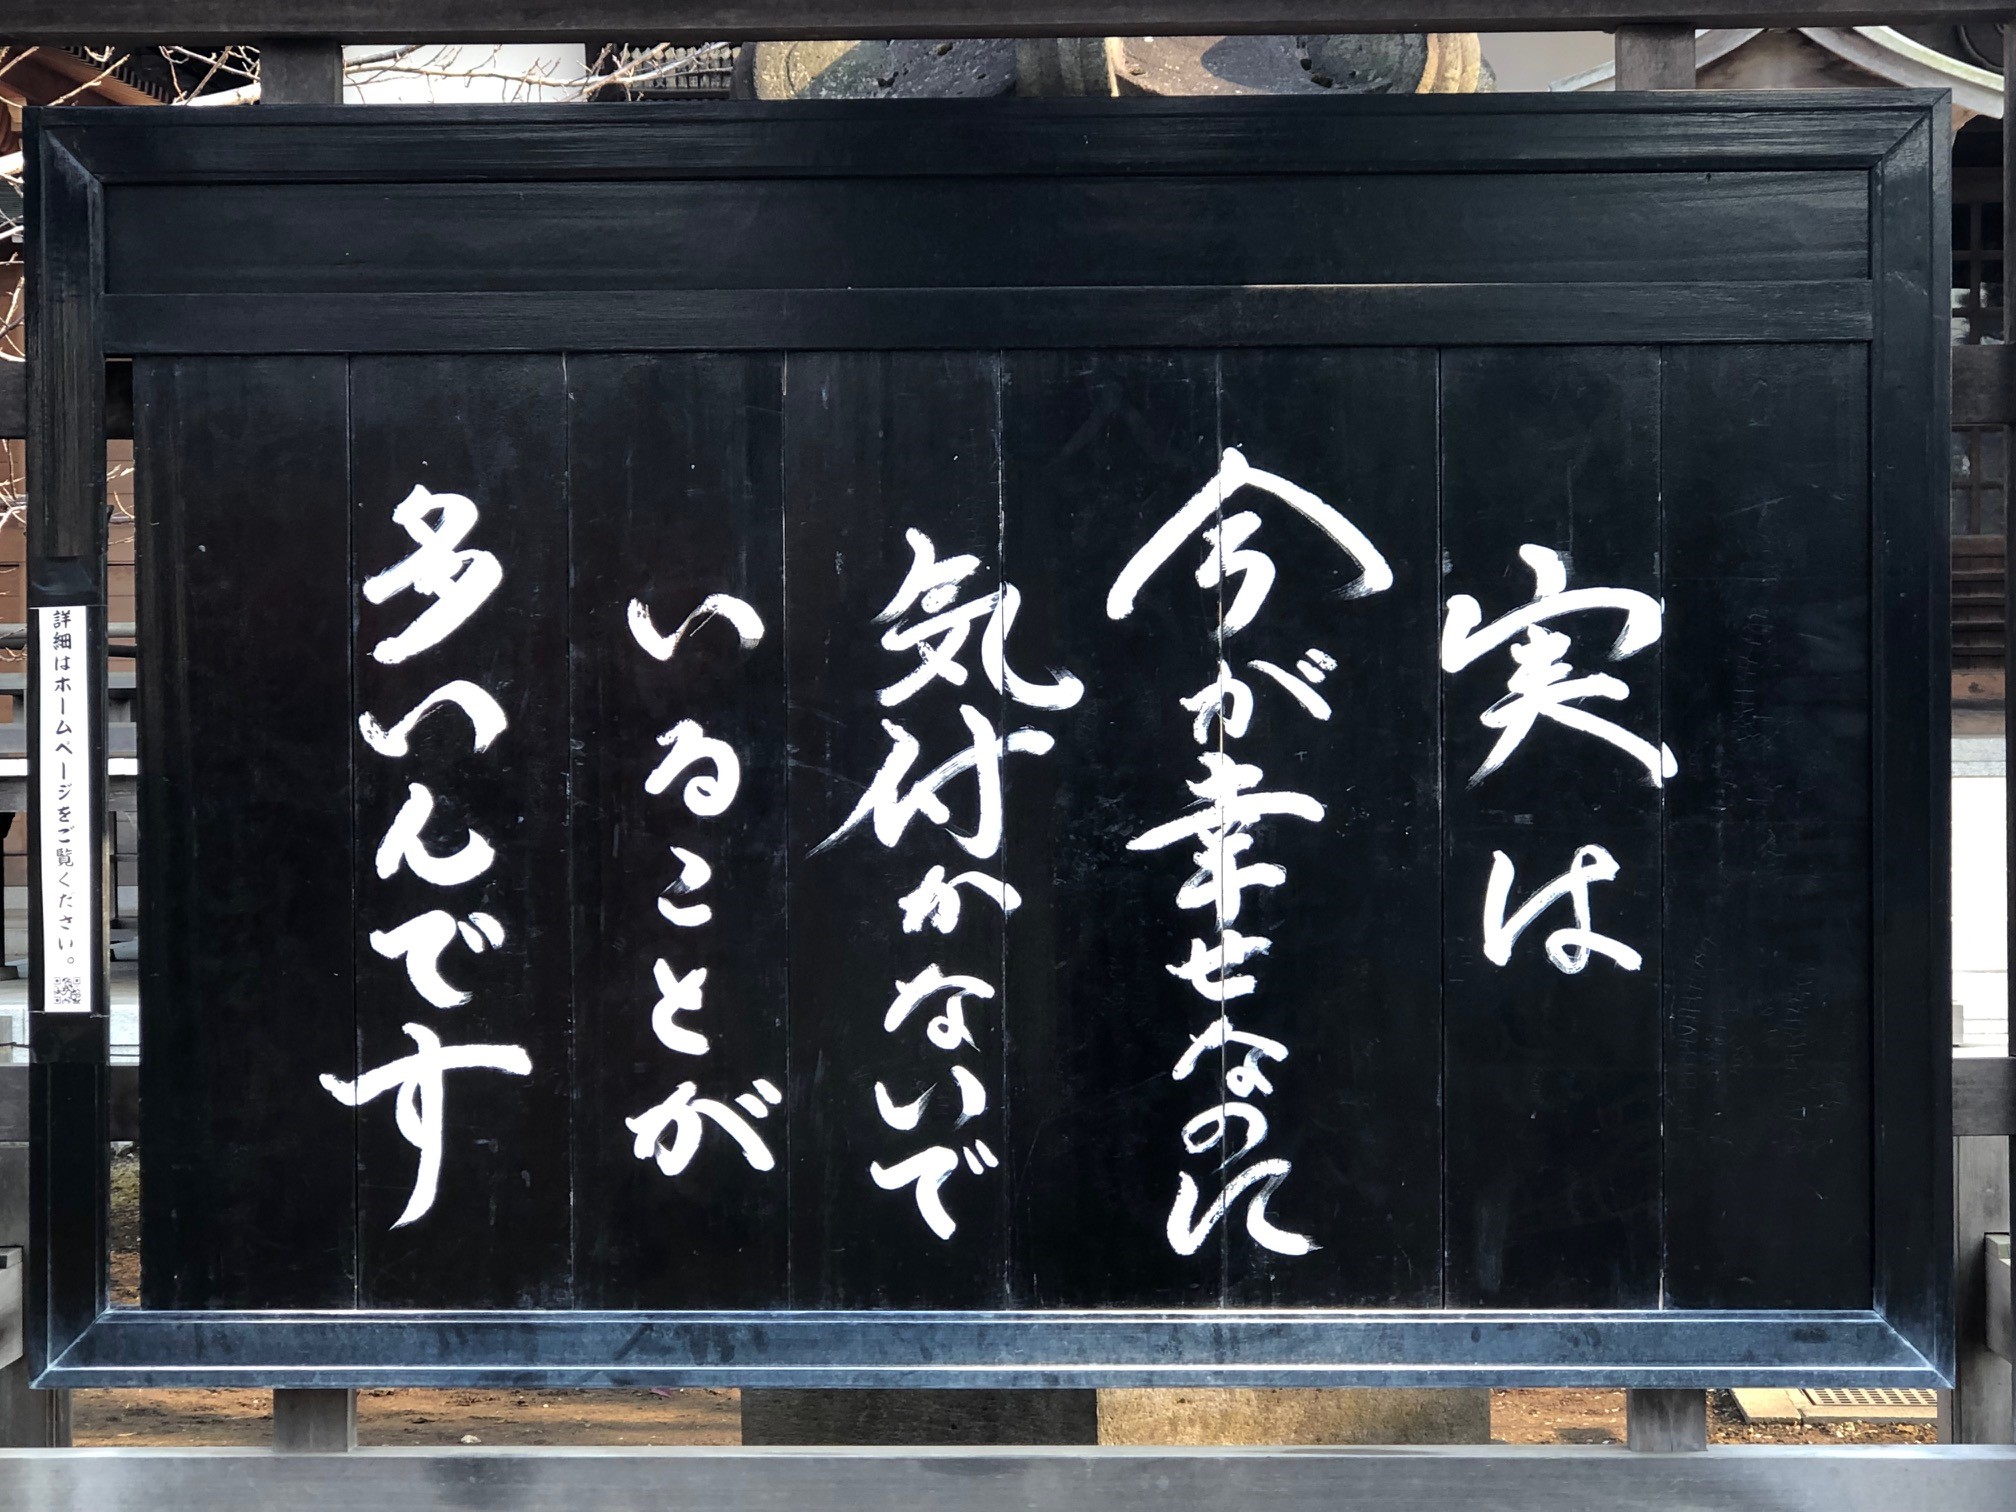 実は
今が幸せなのに
気付かないで
いることが
多いんです
詳細はホームページをご覧ください。